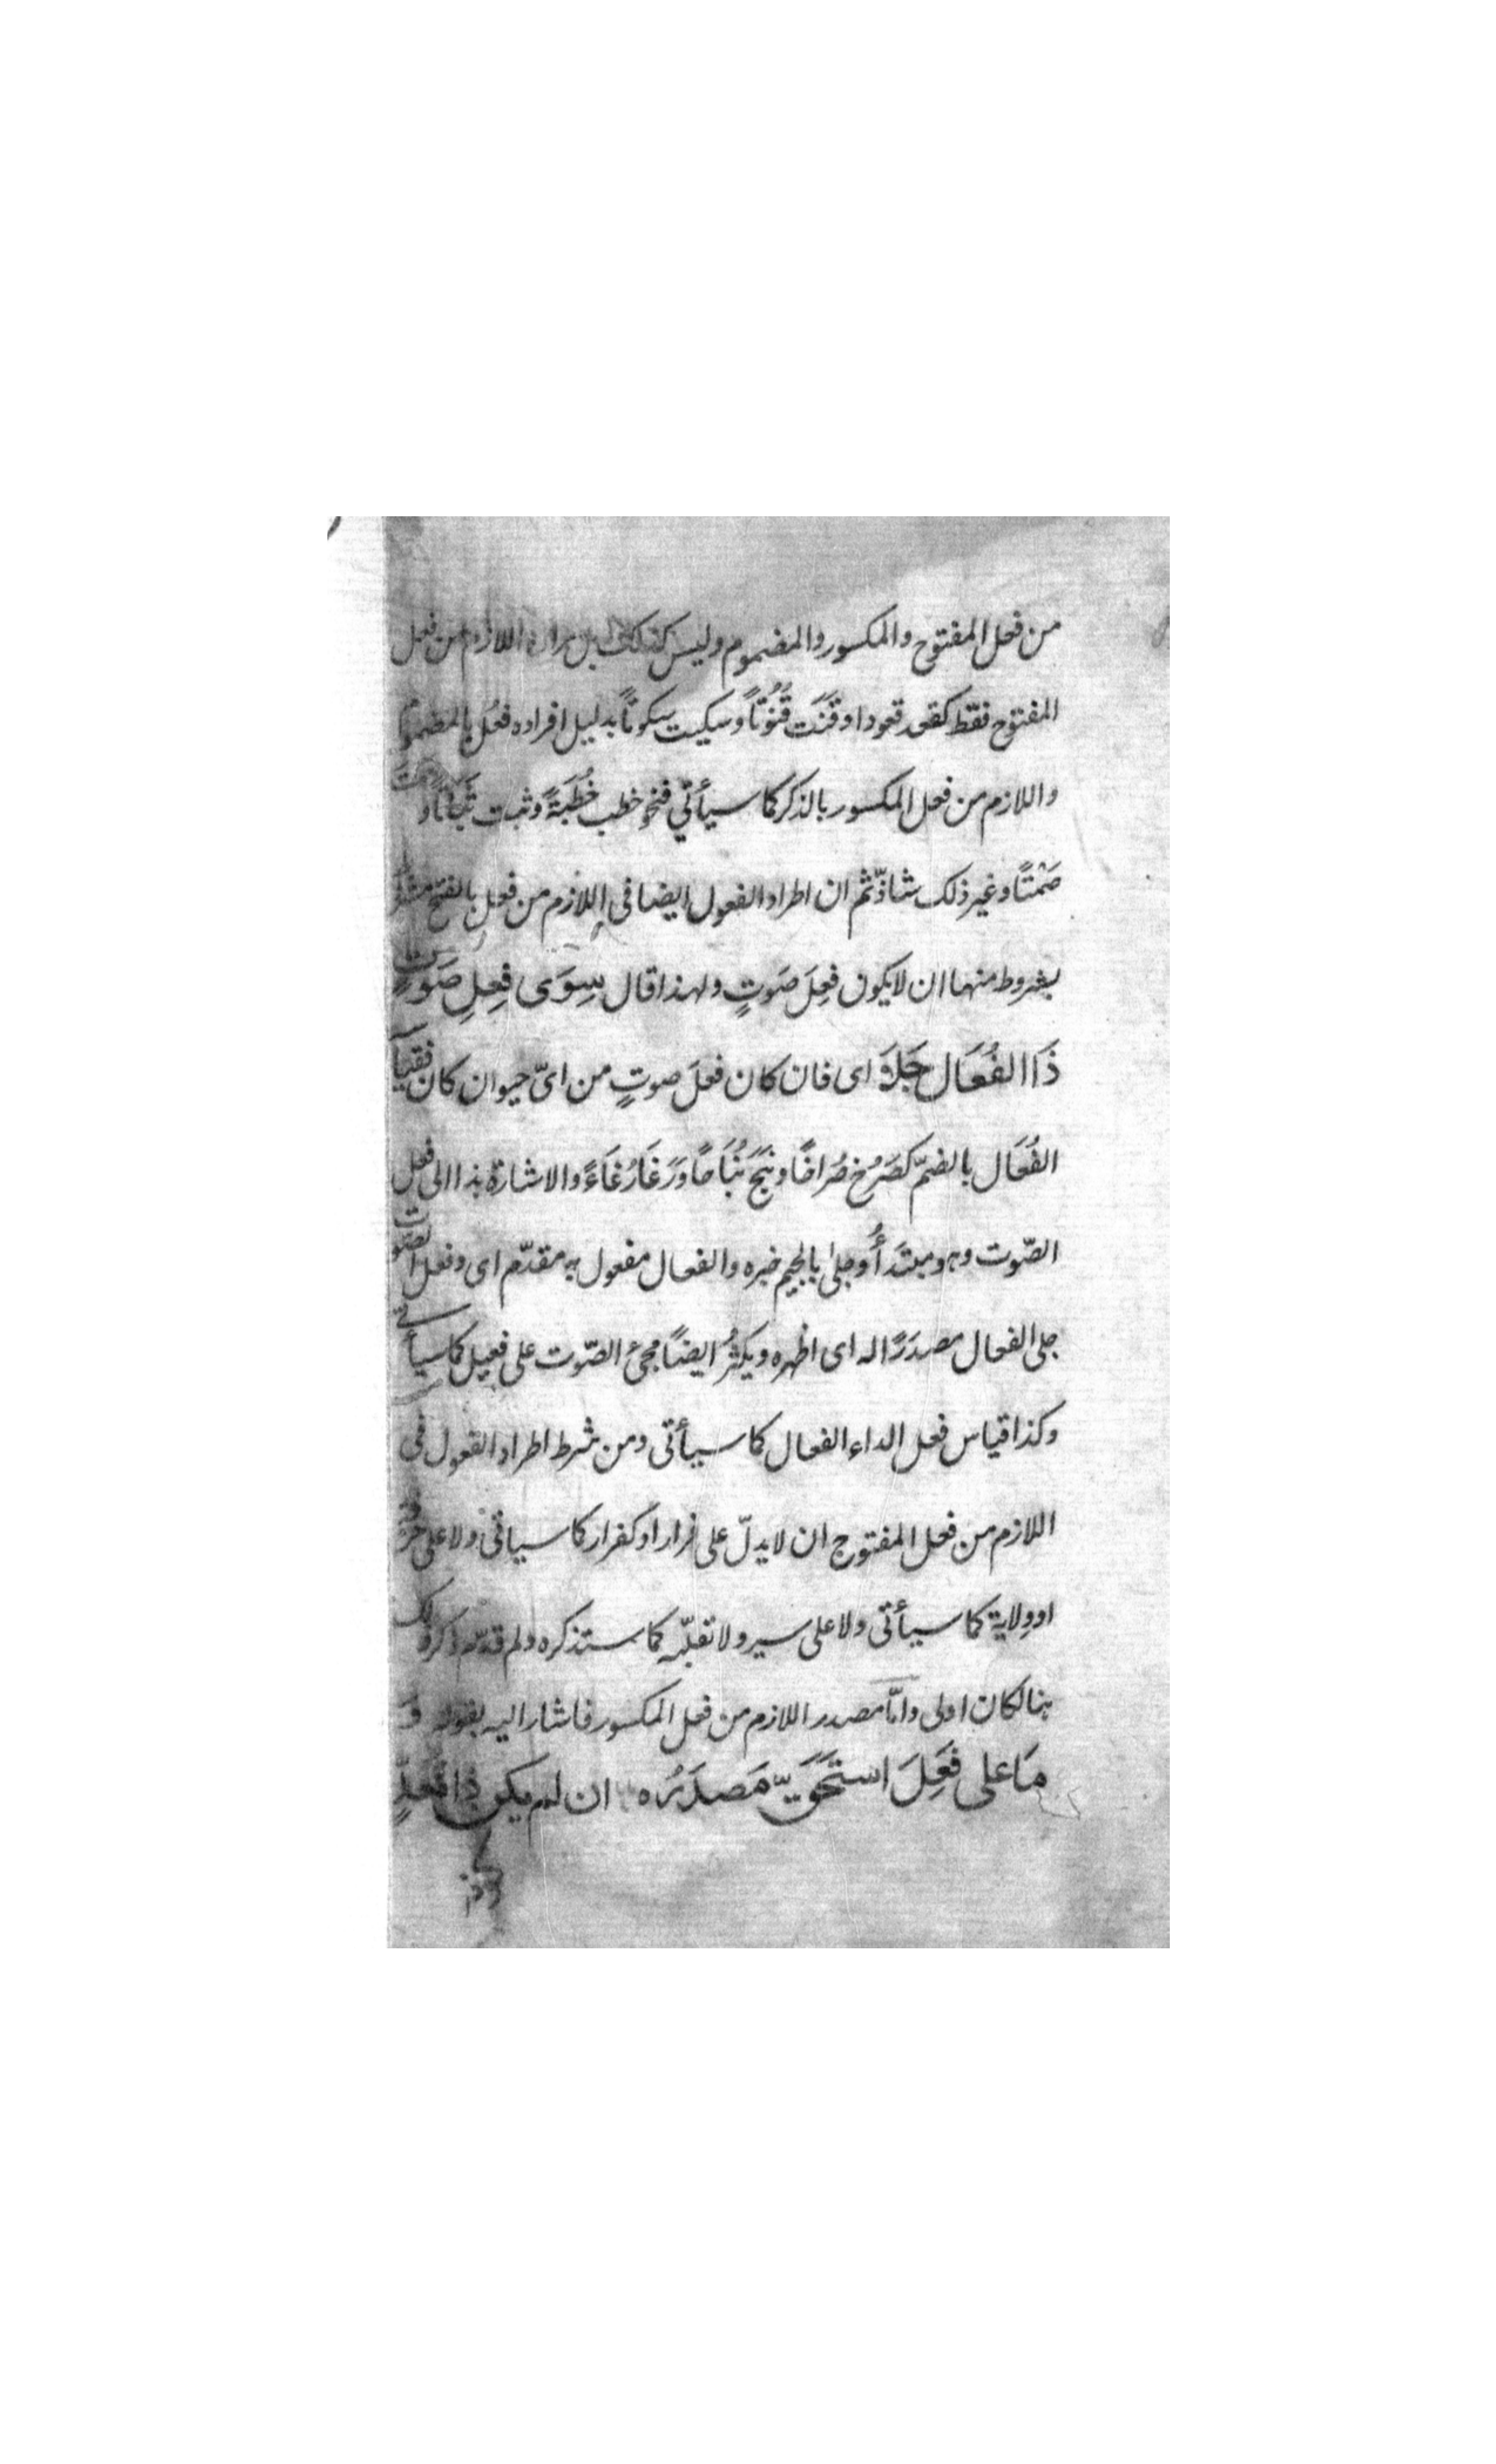 من فعل المفتوح والمكسور والمضموم وليس كذلك بل مراده اللازم من فعل
المفتوح فقط كقعد قعودا وقَنَتَ قُنُوتًا وسكيت سكوتًا بدليل افراده فعُل بالمضموم
واللازم من فعل المكسور بالذكر كما سيأتي فنحو خطب خُطبَةً وثبت ثَبَاتًا وصمتَ
صَمْتًا وغير ذلك شاذّ ثم ان اطراد الفعول ايضا فى اللازم من فعل بالفتح مشروط
بشروط منها ان لا يكون فعِلَ صَوتٍ ولهذا قال سِوَى فِعِلِ صَوتٍ
ذَا الفُعَال جَلَا اى فان كان فعلَ صوتٍ من اىّ حيوان كان فقياسه
الفُعَال بالضمّ كصَرُخ صُراخًا ونَبَحَ نُبَاحًا ورَغَا رُغَاءً والاشارة بذا الى فعل
الصّوت وهو مبتدَأُ وجلىٰ بالجيم خبره والفعال مفعول به مقدّم اى وفعل الصّوت
جلى الفعال مصدَرًا له اى اظهره ويكثُر ايضًا مجئ الصّوت على فعيل كما سيأتى
وكذا قياس فعل الداء الفعال كما سيأتى ومن شرط اطراد الفعول فى
اللازم من فعل المفتوح ان لا يدلّ على فرار او كفرار كما سياتى ولا على حرفة
او وِلاية كما سيأتى ولا على سير ولا تقلّبه كما ستذكره ولم قدّم ذكره لك
هنا لكان اولى وامّا مصدر اللازم من فعل المكسور فاشار اليه بقوله وَ
مَا على فَعِلَ استَحَقَّ مَصدَرُه ان لم يكن ذا تَعَدٍّ